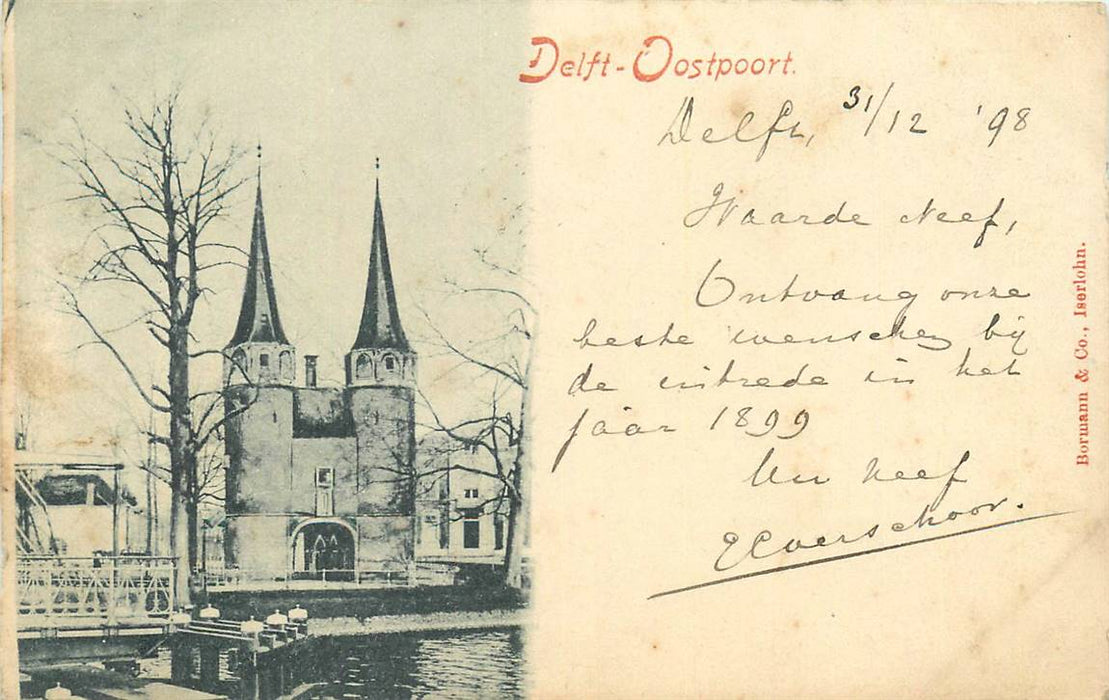 Delft-Oostpoort.
Delft, 31/12 '98
Waarde Neef,
Ontvang onze
beste wenschen bij
de intrede in het
jaar 1899
Uw Neef
Verschoor.
Bormann & Co., Iserlohn.